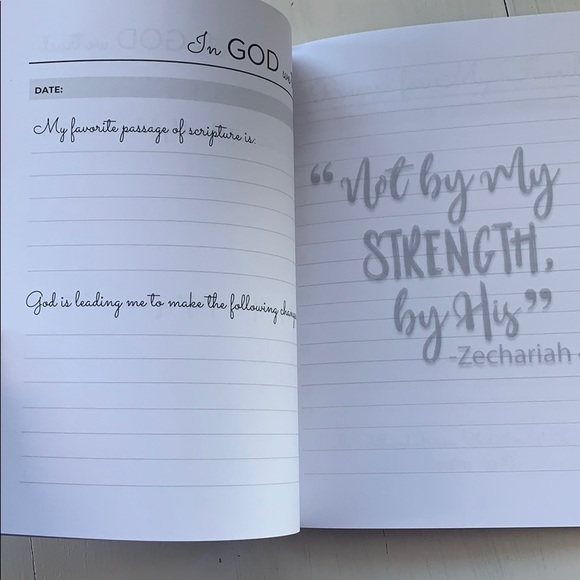 In GOD we
DATE:
My favorite passage of scripture is:
God is leading me to make the following
“Not by My
STRENGTH,
by His”
-Zechariah